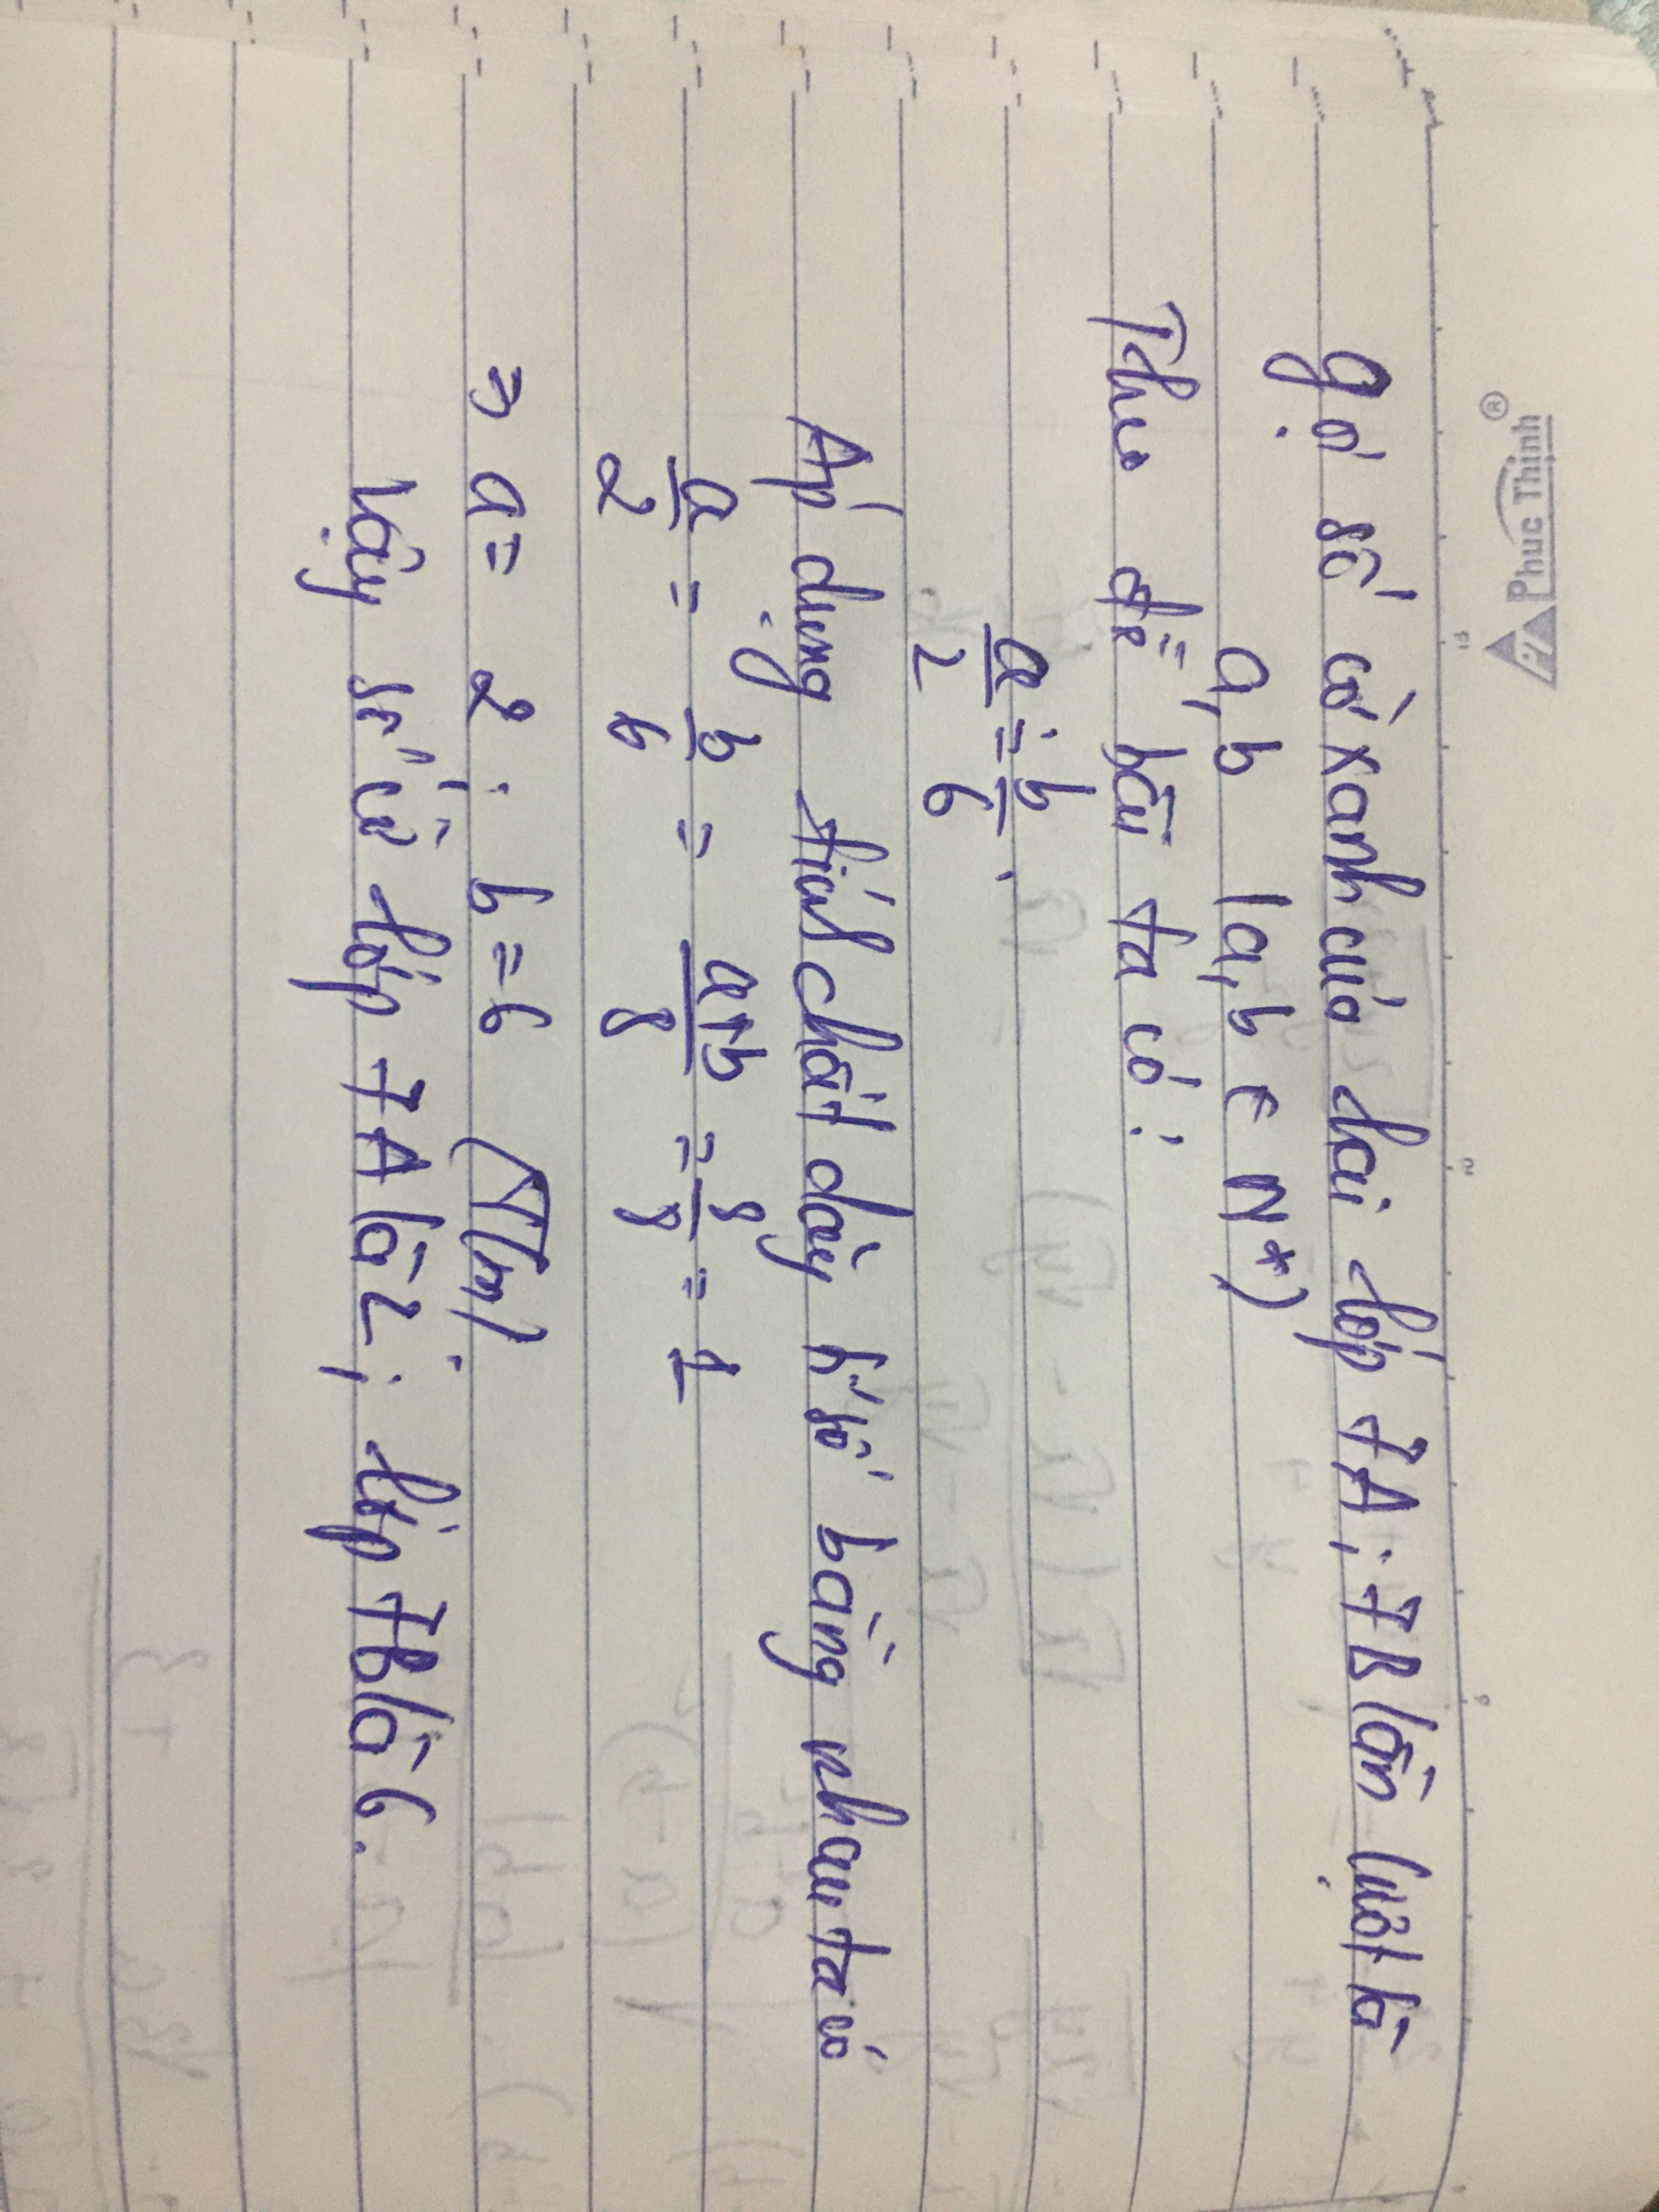 Phuc Thinh®
15 10 5
Gọi số cờ xanh của hai lớp 7A; 7B lần lượt là
a, b (a, b ∈ N*)
Theo đề bài ta có:
a/2 = b/6
Áp dụng tính chất dãy tỉ số bằng nhau ta có
a/2 = b/6 = a+b/8 = 8/8 = 1
= a = 2; b = 6 (T/m).
Vậy số cờ lớp 7A là 2; lớp 7B là 6.